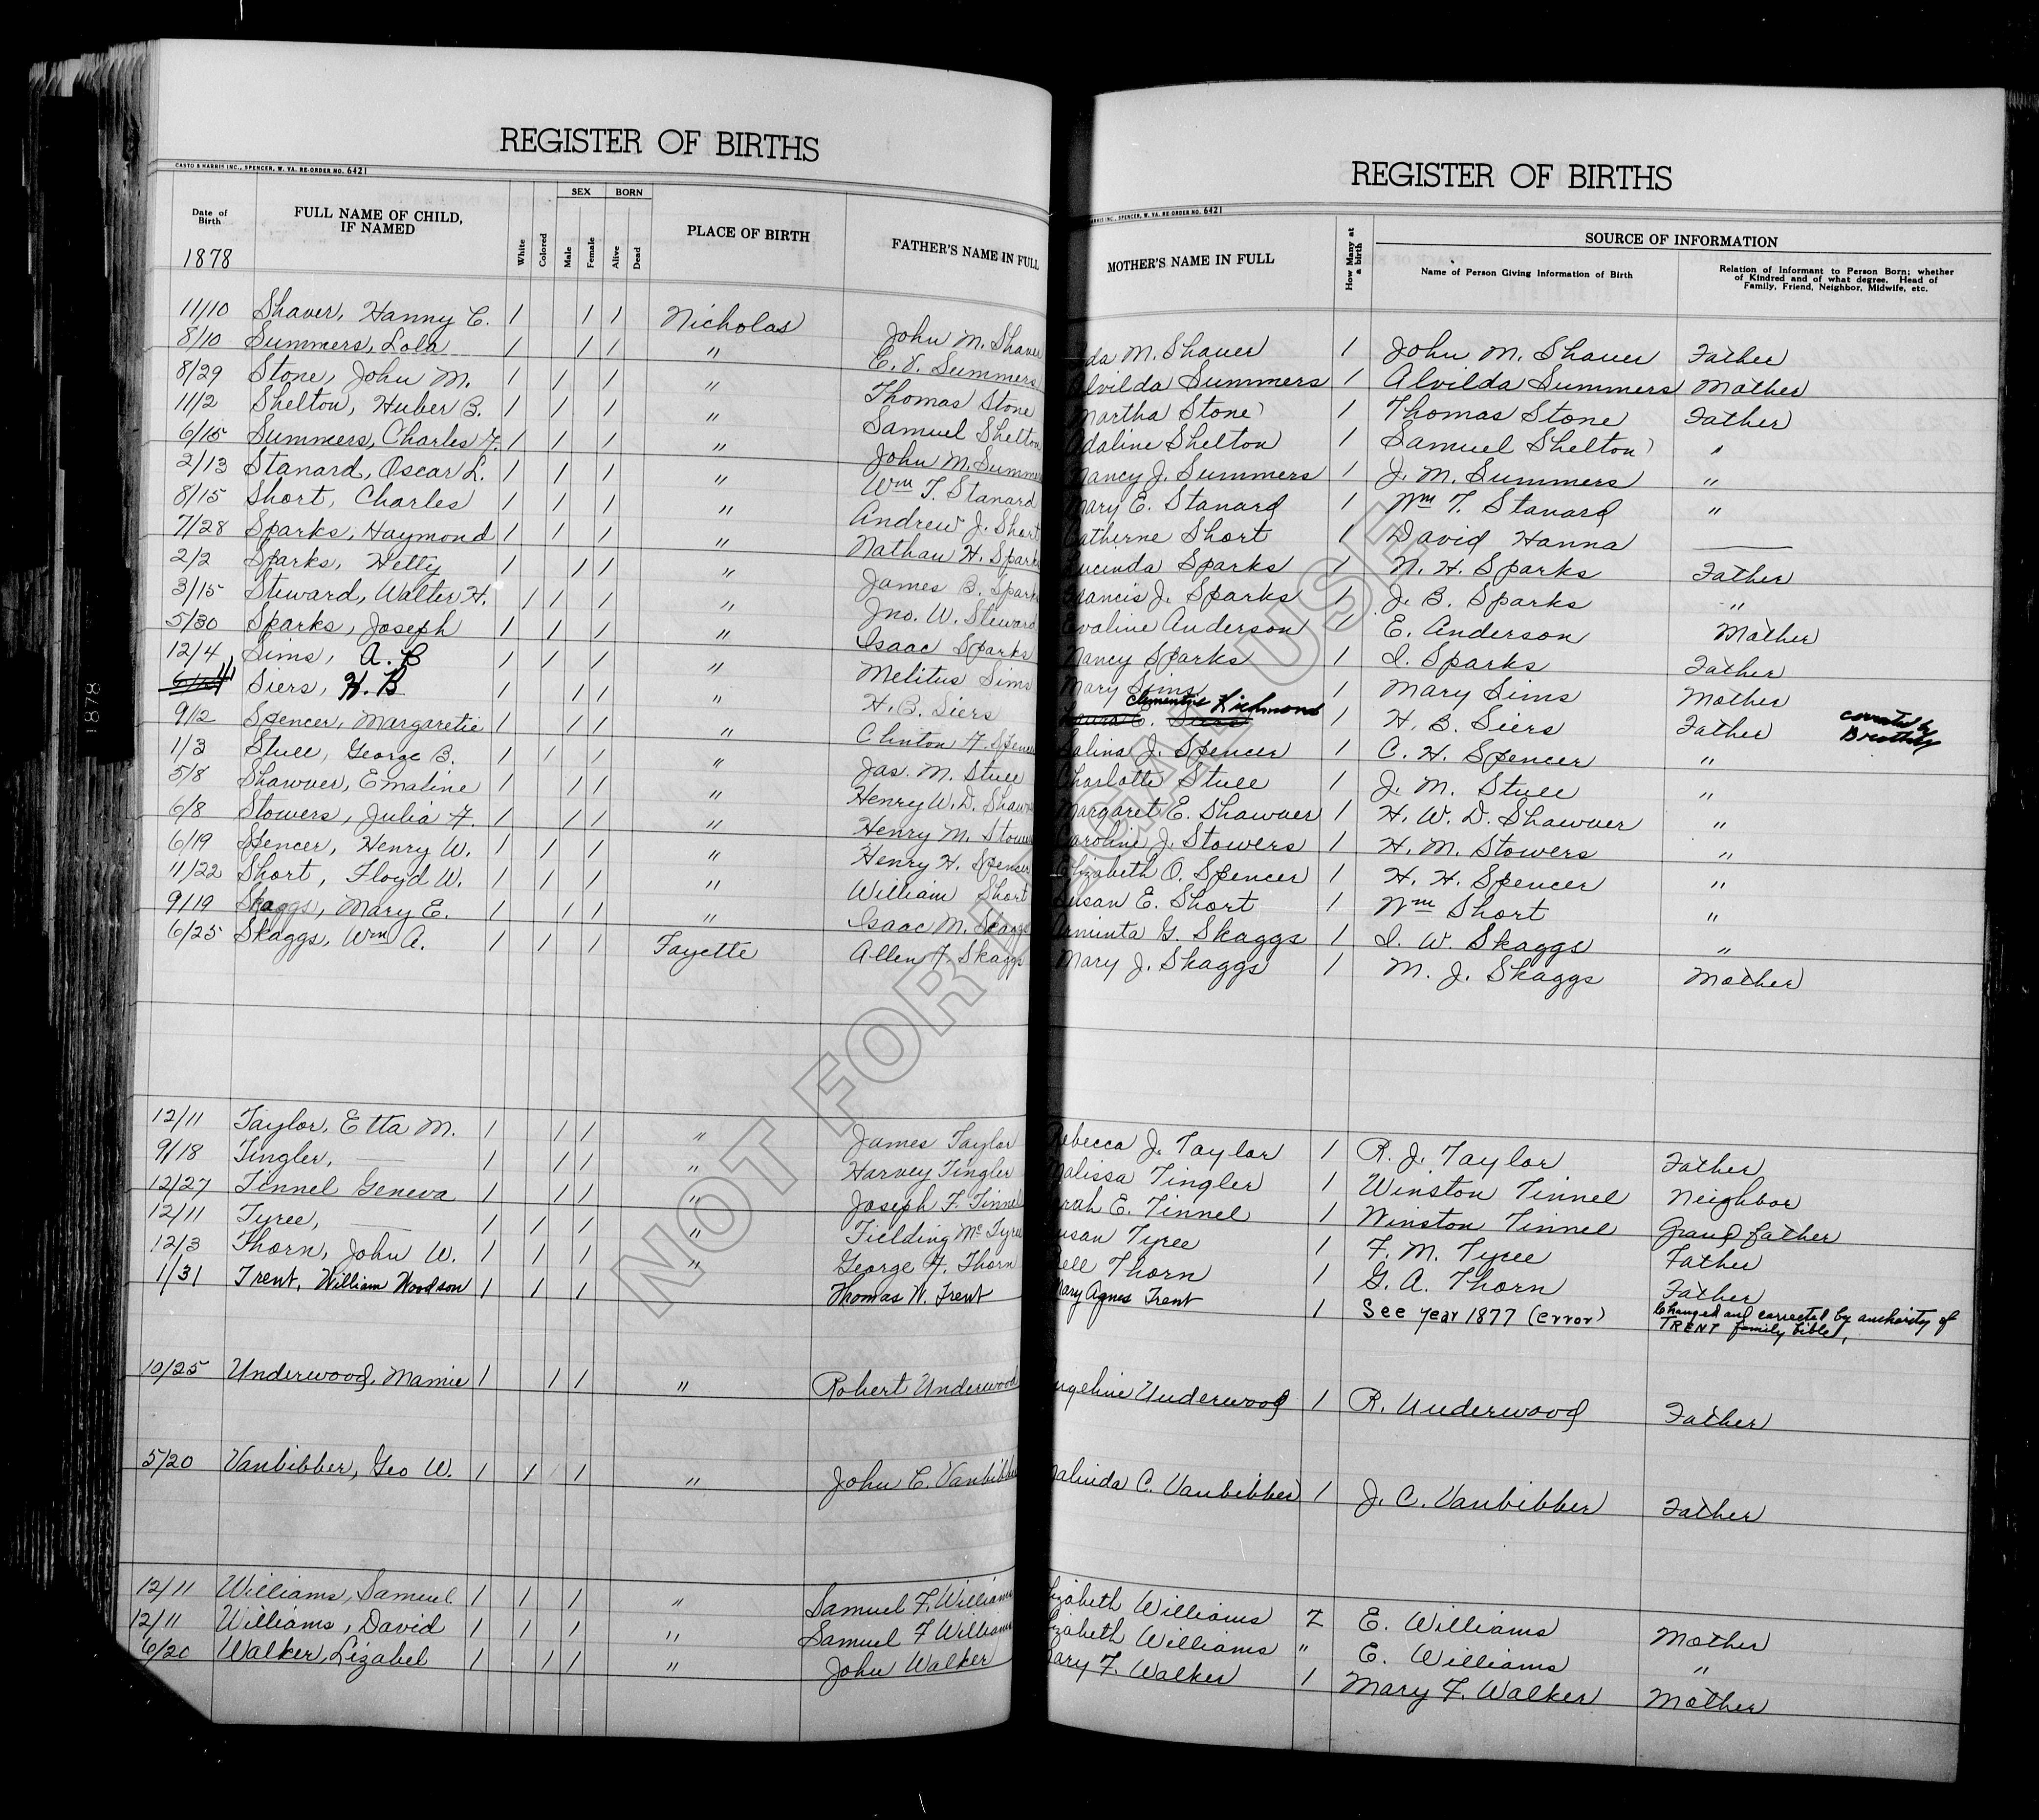 REGISTER OF BIRTHS
CASTO & HARRIS INC., SPENCER, W. VA. RE-ORDER NO. 6421
Date of Birth FULL NAME OF CHILD, IF NAMED White Colored SEX Male Female BORN Alive Dead PLACE OF BIRTH FATHER'S NAME IN FULL
1878
11/10 Shaver, Hanny C. 1 1 1 Nicholas John M. Shaver
8/10 Summers, Lola 1 1 1 " C. V. Summers
8/29 Stone, John M. 1 1 1 " Thomas Stone
11/2 Shelton, Huber B. 1 1 1 " Samuel Shelton
6/15 Summers, Charles F. 1 1 1 " John M. Summers
2/13 Stanard, Oscar L. 1 1 1 " Wm T. Stanard
8/15 Short, Charles 1 1 1 " Andrew J. Short
7/28 Sparks, Haymond 1 1 1 " Nathan H. Sparks
2/2 Sparks, Hetty 1 1 1 " James B. Sparks
3/15 Steward, Walter H. 1 1 1 " Jno. W. Steward
5/30 Sparks, Joseph 1 1 1 " Isaac Sparks
12/4 Sims, A. B 1 1 1 " Melitus Sims
Siers, H. B 1 1 1 " H. B. Siers
9/2 Spencer, Margaretie 1 1 1 " Clinton H. Spencer
1/3 Stull, George B. 1 1 1 " Jas. M. Stull
5/8 Shawver, Emaline 1 1 1 " Henry W. D. Shawver
6/8 Stowers, Julia F. 1 1 1 " Henry M. Stowers
6/19 Spencer, Henry W. 1 1 1 " Henry H. Spencer
11/22 Short, Floyd W. 1 1 1 " William Short
9/19 Skaggs, Mary E. 1 1 1 " Isaac M. Skaggs
6/25 Skaggs, Wm A. 1 1 1 Fayette Allen F. Skaggs
12/11 Taylor, Etta M. 1 1 1 " James Taylor
9/18 Tingler, — 1 1 1 " Harvey Tingler
12/27 Tinnel Geneva 1 1 1 " Joseph F. Tinnel
12/11 Tyree, — 1 1 1 " Fielding Mc Tyree
12/3 Thorn, John W. 1 1 1 " George A. Thorn
1/31 Trent, William Woodson 1 1 1 Thomas W. Trent
10/25 Underwood, Mamie 1 1 1 " Robert Underwood
5/20 Vanbibber, Geo W. 1 1 1 " John C. Vanbibber
12/11 Williams, Samuel 1 1 1 " Samuel F. Williams
12/11 Williams, David 1 1 1 " Samuel F Williams
6/20 Walker, Lizabel 1 1 1 " John Walker
1878
REGISTER OF BIRTHS
HARRIS INC., SPENCER, W. VA. RE-ORDER NO. 6421
MOTHER'S NAME IN FULL How Many at a birth SOURCE OF INFORMATION
Name of Person Giving Information of Birth Relation of Informant to Person Born; whether of Kindred and of what degree. Head of Family, Friend, Neighbor, Midwife, etc.
da M. Shaver 1 John M. Shaver Father
Alvilda Summers 1 Alvilda Summers Mother
Martha Stone 1 Thomas Stone Father
Adaline Shelton 1 Samuel Shelton "
Nancy J. Summers 1 J. M. Summers "
Mary E. Stanard 1 Wm T. Stanard "
Catherine Short 1 David Hanna —
Lucinda Sparks 1 N. H. Sparks Father
Francis J. Sparks 1 J. B. Sparks "
Evaline Anderson 1 E. Anderson Mother
Nancy Sparks 1 I. Sparks Father
Mary Sims 1 Mary Sims Mother
Clementine Richmond
Laura C. Siers 1 H. B. Siers Father corrected by Brother
Salina J. Spencer 1 C. H. Spencer "
Charlotte Stull 1 J. M. Stull "
Margaret E. Shawver 1 H. W. D. Shawver "
Caroline J. Stowers 1 H. M. Stowers "
Elizabeth O. Spencer 1 H. H. Spencer "
Susan E. Short 1 Wm Short "
Arminta G. Skaggs 1 I. W. Skaggs "
Mary J. Skaggs 1 M. J. Skaggs Mother
Rebecca J. Taylor 1 R. J. Taylor Father
Malissa Tingler 1 Winston Tinnel Neighbor
rah E. Tinnel 1 Winston Tinnel Grand father
usan Tyree 1 F. M. Tyree Father
Bell Thorn 1 G. A. Thorn Father
Mary Agnes Trent 1 See year 1877 (error) Changed and corrected by authority of TRENT family bible,
ngeline Underwood 1 R. Underwood Father
Malinda C. Vanbibber 1 J. C. Vanbibber Father
lizabeth Williams 2 E. Williams Mother
lizabeth Williams " E. Williams "
Mary F. Walker 1 Mary F. Walker Mother
NOT FOR LEGAL USE